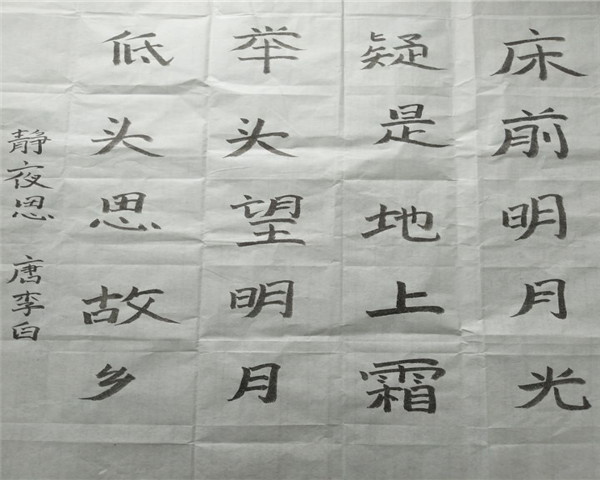 床前明月光
疑是地上霜
举头望明月
低头思故乡
静夜思 唐李白